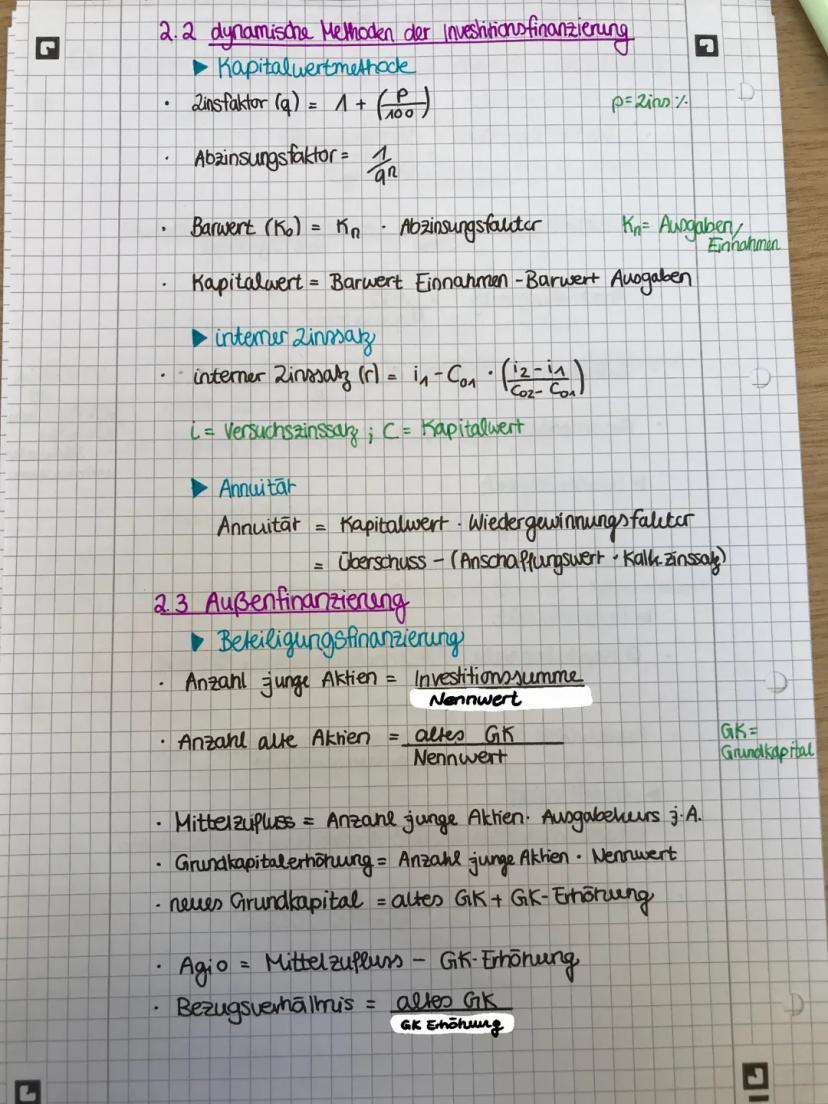 2.2 dynamische Methoden der Investitionsfinanzierung
▶ Kapitalwertmethode
· Zinsfaktor (q) = 1 + (p/100) p = Zins %
· Abzinsungsfaktor = 1/qn
· Barwert (K0) = Kn · Abzinsungsfaktor Kn = Ausgaben/
Einnahmen
· Kapitalwert = Barwert Einnahmen - Barwert Ausgaben
▶ interner Zinssatz
· interner Zinssatz (r) = i1 - C01 · (i2 - i1 / C02 - C01)
i = Versuchszinssatz ; C = Kapitalwert
▶ Annuität
Annuität = Kapitalwert · Wiedergewinnungsfaktor
= Überschuss - (Anschaffungswert · Kalk. zinssatz)
2.3 Außenfinanzierung
▶ Beteiligungsfinanzierung
· Anzahl junge Aktien = Investitionssumme
Nennwert
· Anzahl alte Aktien = altes GK
Nennwert
GK =
Grundkapital
· Mittelzufluss = Anzahl junge Aktien · Ausgabekurs j.A.
· Grundkapitalerhöhung = Anzahl junge Aktien · Nennwert
· neues Grundkapital = altes GK + GK-Erhöhung
· Agio = Mittelzufluss - GK-Erhöhung
· Bezugsverhältnis = altes GK
GK Erhöhung